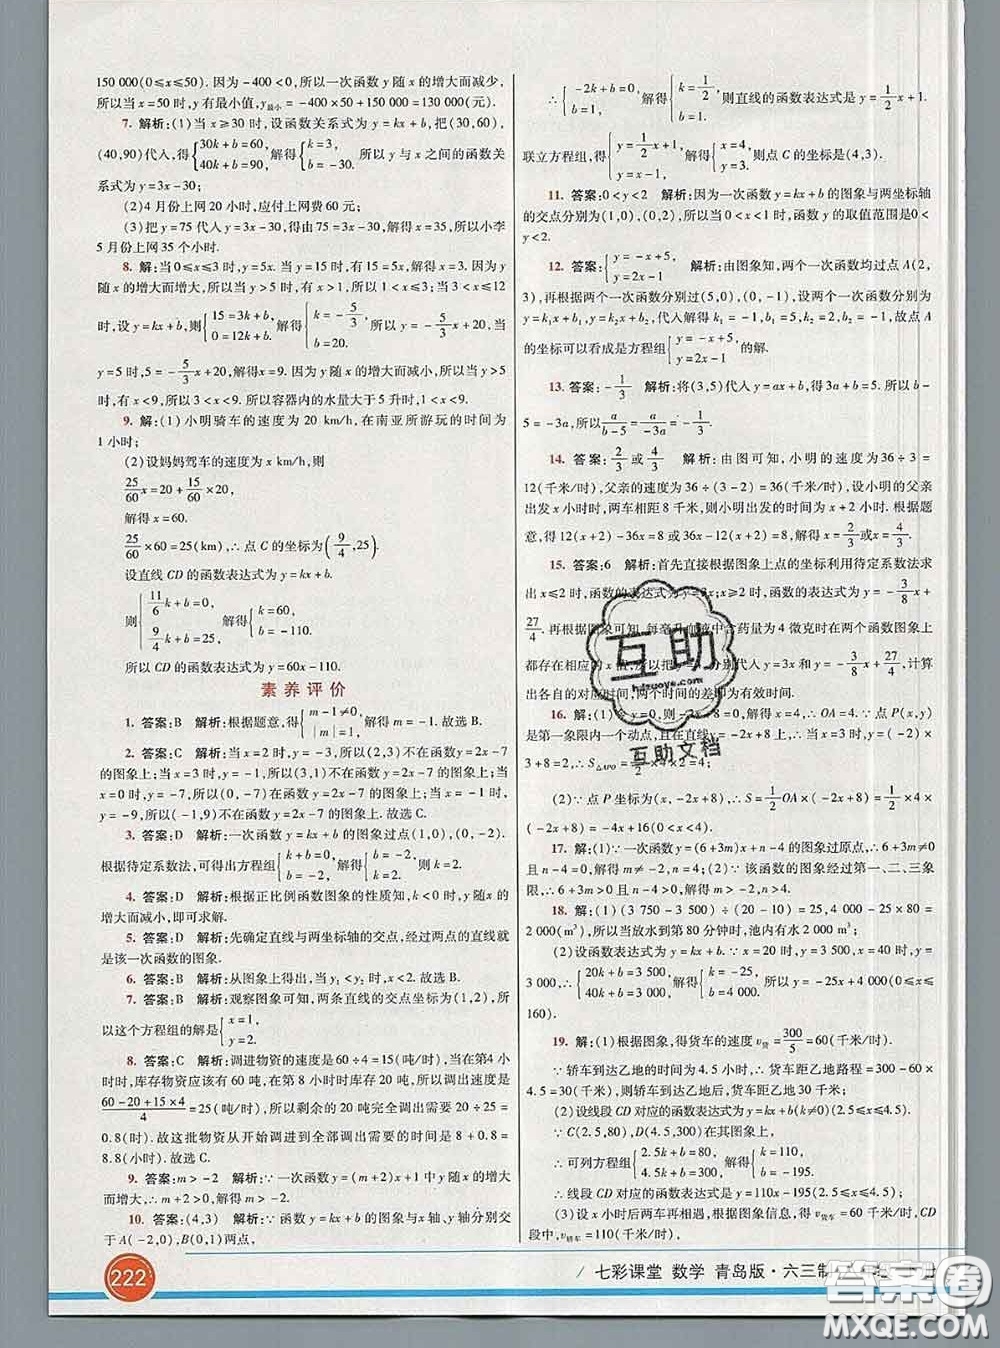 150 000(0≤x≤50). 因为-400<0,所以一次函数 y 随 x 的增大而减少,
所以当 x=50 时,y 有最小值,y最小=-400×50+150 000=130 000(元).
7. 解析:(1)当 x≥30 时,设函数关系式为 y=kx+b,把(30,60),
(40,90)代入,得{30k+b=60, 40k+b=90, 解得{k=3, b=-30. 所以 y 与 x 之间的函数关
系式为 y=3x-30;
(2)4 月份上网 20 小时,应付上网费 60 元;
(3)把 y=75 代入 y=3x-30,得由 75=3x-30,解得 x=35,所以小李
5 月份上网 35 个小时.
8. 解:当 0≤x≤3 时,y=5x. 当 y=15 时,有 5x=15,解得 x=3. 因为 y
随 x 的增大而增大,所以当 y>5 时,有 1<x≤3;当 3≤x≤12
时,设 y=kx+b,则{15=3k+b, 0=12k+b. 解得{k=-5/3, b=20. 所以 y=-5/3x+20. 当
y=5 时,5=-5/3x+20,解得 x=9. 因为 y 随 x 的增大而减小,所以当 y>5
时,有 3≤x<9. 所以容器内的水量大于 5 升时,1<x<9.
9. 解:(1)小明骑车的速度为 20 km/h,在南亚所游玩的时间为
1 小时;
(2)设妈妈驾车的速度为 x km/h,则
25/60x=20+15/60×20,
解得 x=60.
25/60×60=25(km),∴点 C 的坐标为(9/4,25).
设直线 CD 的函数表达式为 y=kx+b.
则{11/6k+b=0, 9/4k+b=25, 解得{k=60, b=-110.
所以 CD 的函数表达式为 y=60x-110.
素养评价
1. 答案:B 解析:根据题意,得{m-1≠0, |m|=1, 解得 m=-1. 故选 B.
2. 答案:C 解析:当 x=2 时,y=-3,所以(2,3)不在函数 y=2x-7
的图象上;当 x=3 时,y=-1,所以(3,1)不在函数 y=2x-7 的图象上;当
x=0 时,y=-7,所以(0,-7)在函数 y=2x-7 的图象上;当 x=-1 时,
y=-9,所以(-1,9)不在函数 y=2x-7 的图象上. 故选 C.
3. 答案:D 解析:一次函数 y=kx+b 的图象过点(1,0),(0,-2).
根据待定系数法,可得出方程组{k+b=0, b=-2. 解得{b=-2, k=2. 则 k=2.
4. 答案:D 解析:根据正比例函数图象的性质知,k<0,y 随 x 的
增大而减小,即可求解.
5. 答案:D 解析:先确定直线与两坐标轴的交点,经过两点的直线就
是该一次函数的图象.
6. 答案:B 解析:从图象上得出,当 y₁<y₂ 时,x<2. 故选 B.
7. 答案:B 解析:观察图象可知,两条直线的交点坐标为(1,2),所
以这个方程组的解是{x=1, y=2.
8. 答案:C 解析:调进物资的速度是 60÷4=15(吨/时),当在第4 小
时时,库存物资应该有 60 吨,在第 8 小时时库存 20 吨,所以调出速度是
(60-20+15×4)/4=25(吨/时),所以剩余的 20 吨完全调出需要 20÷25=
0.8(时). 故这批物资从开始调进到全部调出需要的时间是 8+0.8=
8.8(小时). 故选 C.
9. 答案:m>-2 解析:∵一次函数 y=(m+2)x+1 中 y 随 x 的增大
而增大,∴m+2>0,解得 m>-2.
10. 答案:(4,3) 解析:∵函数 y=kx+b 的图象与 x轴、y轴分别交
于 A(-2,0),B(0,1)两点,
∴{-2k+b=0, b=1, 解得{k=1/2, b=1. 则直线的函数表达式是 y=1/2x+1.
联立方程组,得{y=1/2x+1, y=x-1, 解得{x=4, y=3. 则点 C 的坐标是(4,3).
11. 答案:0<y<2 解析:因为一次函数 y=kx+b 的图象与两坐标轴
的交点分别为(1,0),(0,2),所以当 0<x<1 时,函数 y 的取值范围是0<
y<2.
12. 答案:{y=-x+5, y=2x-1 解析:由图象知,两个一次函数均过点 A(2,
3),再根据两个一次函数分别过(5,0),(0,-1),设两个一次函数分别为
y=k₁x+b₁,y=k₂x+b₂,代入解得 k₁=-1,b₁=5,k₂=2,b₂=-1,故点 A
的坐标可以看成是方程组{y=-x+5, y=2x-1 的解.
13. 答案:-1/3 解析:将(3,5)代入 y=ax+b,得 3a+b=5. 所以 b-
5=-3a,所以a/(b-5)=a/(-3a)=-1/3.
14. 答案:2/3或4/3 解析:由图可知,小明的速度为 36÷3=
12(千米/时),父亲的速度为 36÷(3-2)=36(千米/时),设小明的父亲
出发 x 小时时,两车相距 8 千米,则小明出发的时间为 x+2 小时. 根据题
意,得 12(x+2)-36x=8 或 36x-12(x+2)=8,解得 x=2/3 或 x=4/3.
15. 答案:6 解析:首先直接根据图象上点的坐标利用待定系数法求
出 x≤2 时,函数的表达式为 y=3x;x≥2 时,函数表达式为 y=-3/8x+
27/4. 再根据图象可知,每毫升血液中含药量为 4 微克时在两个函数图象上
都存在相应的 x 值,所以,分别代入 y=3x 和 y=-3/8x+27/4,计算
出各自的对应时间,两个时间的差即为有效时间.
16. 解:(1)令 y=0,则 -2x+8=0,解得 x=4,∴OA=4. ∵点 P(x,y)
是第一象限内一个动点,且在直线 y=-2x+8 上,∴当 x=3 时,y=(-2)×
3+8=2,∴S△APO=1/2×4×2=4;
(2)∵点 P 坐标为(x,-2x+8),∴S=1/2OA×(-2x+8)=1/2×4×
(-2x+8)=-4x+16(0<x<4).
17. 解:(1)∵一次函数 y=(6+3m)x+m 的图象过原点,∴6+3m≠0
且 n-4=0,解得 m≠-2,n=4;(2)∵该函数的图象经过第一、二、三象
限,∴6+3m>0 且 n-4>0,解得 m>-2,n>4.
18. 解:(1)(3 750-3 500)÷(20-10)=25,4 000-25×80=
2 000(m³),所以当放水到第 80 分钟时,池内有水 2 000 m³;
(2)设函数表达式为 y=kx+b. ∵x=20,y=3 500;x=40,y=3 000.
∴{20k+b=3 500, 40k+b=3 000, 解得{k=-25, b=4 000, 所以 y=-25x+4 000(0≤x≤
160).
19. 解:(1)根据图象,得货车的速度 v货=300/5=60(千米/时),
∵轿车到达乙地的时间为 4.5 小时,∴轿车到达乙地路程=300-60×
4.5=30(千米),则轿车到达乙地后,货车距乙地 30 千米;
(2)设线段 CD 对应的函数表达式为 y=kx+b(k≠0)(2.5≤x≤4.5).
∵C(2.5,80),D(4.5,300)在其图象上,
∴可列方程组{2.5k+b=80, 4.5k+b=300, 解得{k=110, b=-195,
∴线段 CD 对应的函数表达式是 y=110x-195(2.5≤x≤4.5);
(3)设 x 小时后两车再相遇,根据图象信息,得 v货车=60 千米/时,CD
段中,v轿车=110(千米/时).
222
七彩课堂 数学 青岛版·六三制
互助
hduzuoye.com
互助文档
答案圈
MXQE.COM